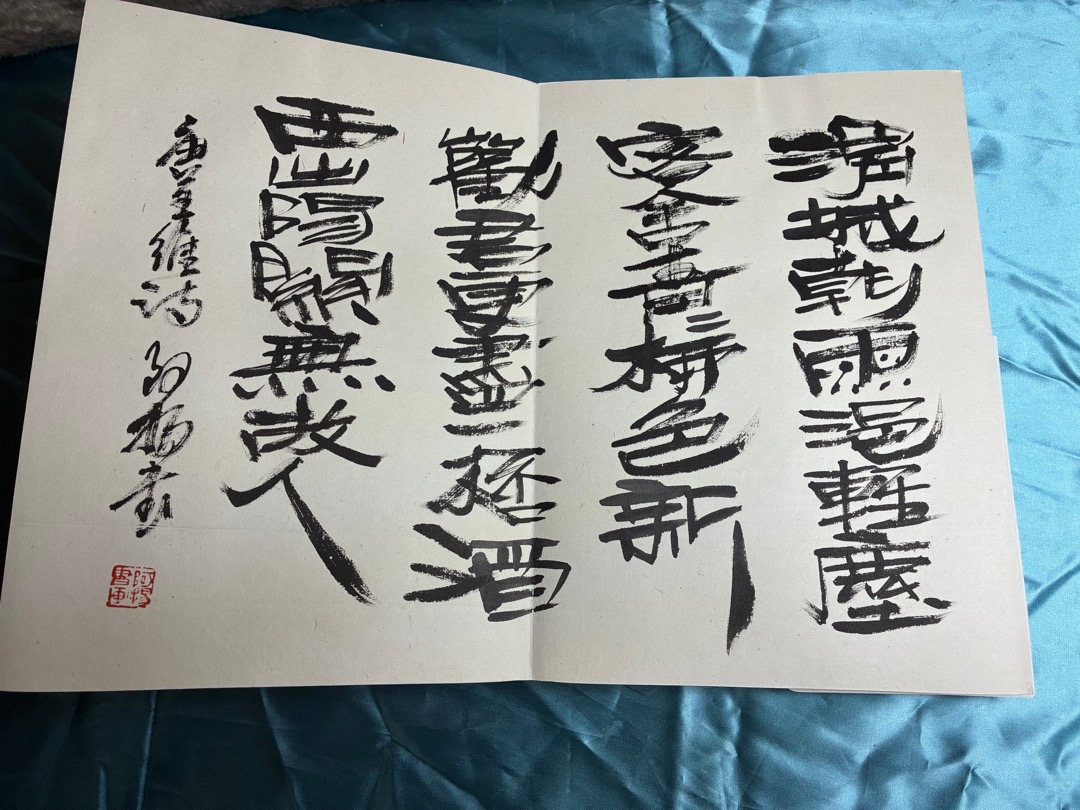 渭城朝雨浥輕塵
客舍青〻柳色新
勸君更盡一杯酒
西出陽關無故人
唐王維詩 阿楊書
阿楊書画